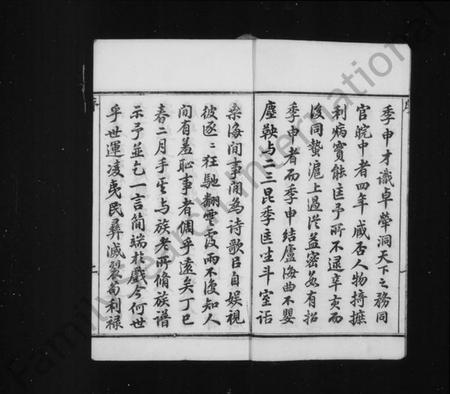 季申才識卓犖洞天下之務同
官皖中者四年臧否人物掎摭
利病實能匡予所不逮辛亥而
後同蟄滬上過從益密妄有招
季申者而季申結廬海曲不嬰
塵鞅与二三昆季匡坐斗室話
桑海間事間為詩歌自娛視
彼逐逐狂馳翻雲覆雨不復知人
間有羞恥事者偶乎遠矣丁巳
春二月手其与族老所脩族譜
示予並乞一言簡端於戲今何世
乎世運凌夷民彝滅裂苟利祿
Family Search International